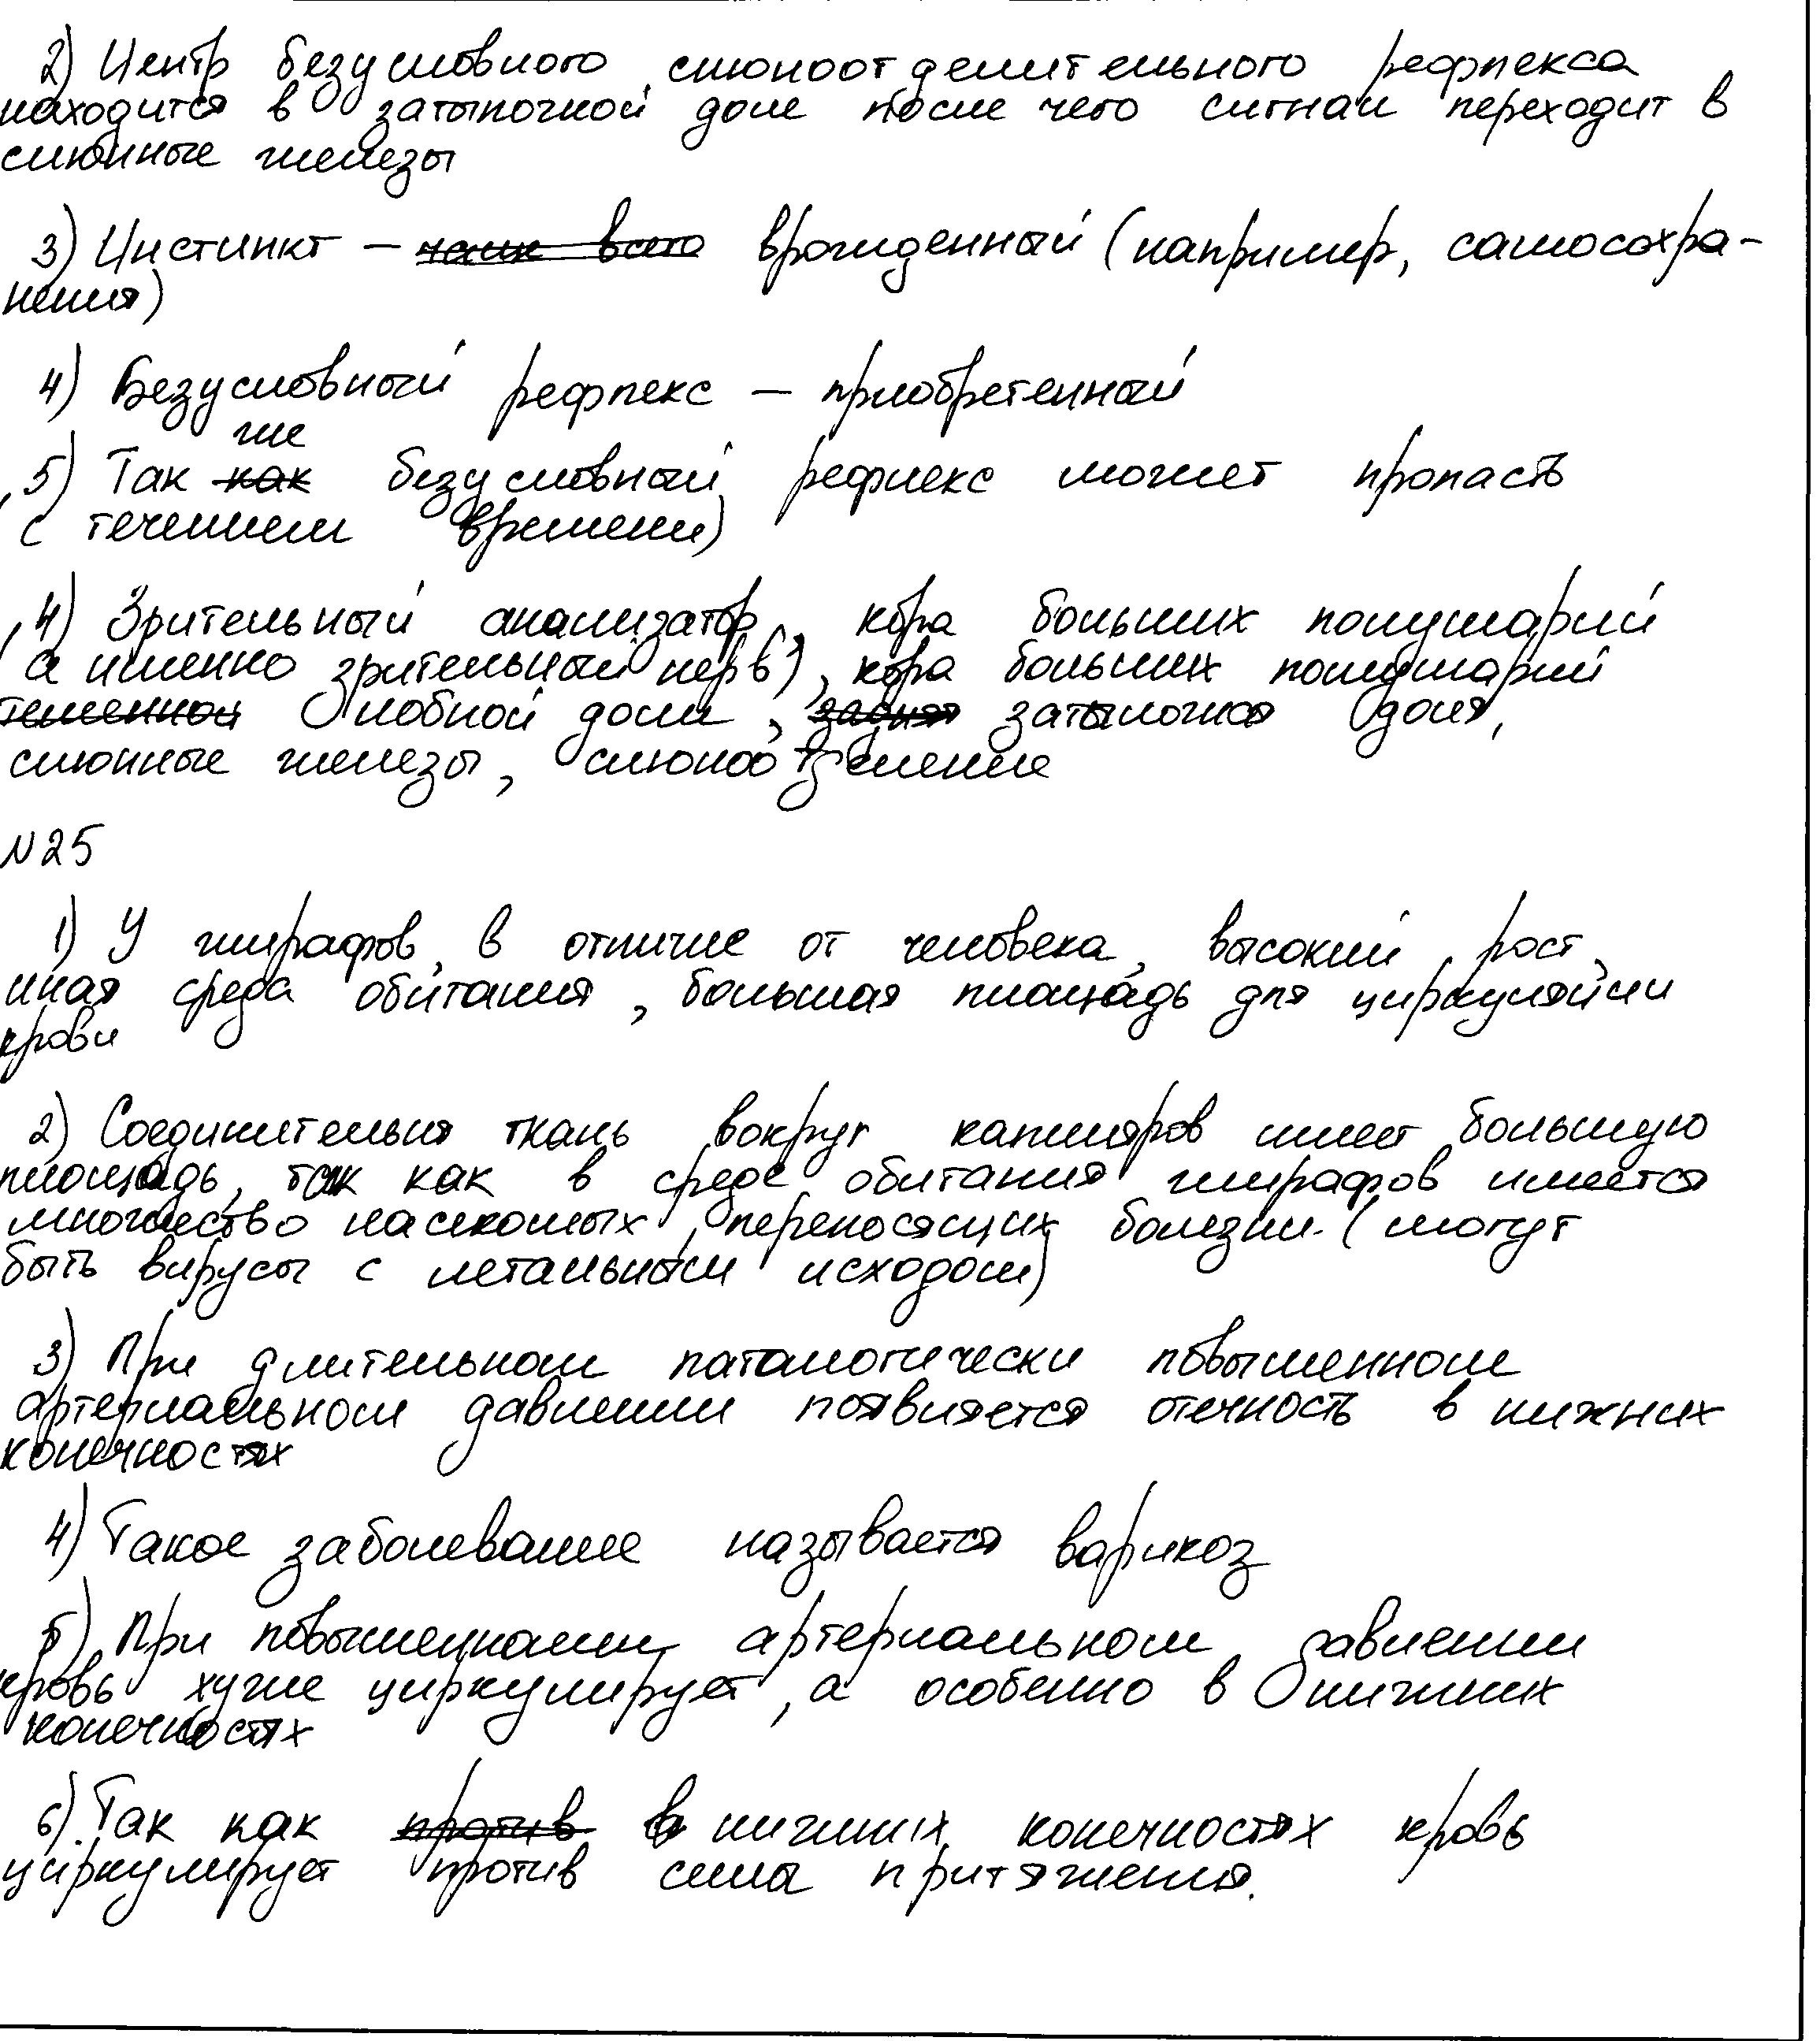 2) Центр безусловного слюноотделительного рефлекса
находится в затылочной доле после чего сигнал переходит в
слюнные железы
3) Инстинкт – врожденный (например, самосохра-
нения)
4) Безусловный рефлекс – приобретенный
же
5) Так как безусловный рефлекс может пропасть
с течением времени)
4) Зрительный анализатор, кора больших полушарий
(а именно зрительный нерв), кора больших полушарий
теменной лобной доли, задняя затылочная доля,
слюнные железы, слюноотделение
N25
1) У жирафов, в отличие от человека, высокий рост,
иная среда обитания, большая площадь для циркуляции
крови
2) Соединительня ткань вокруг капиляров имеет большую
площадь, так как в среде обитания жирафов имеется
множество насекомых, переносящих болезни. (могут
быть вирусы с летальным исходом)
3) При длительном патологически повышенном
артериальном давлении появляется отечность в нижних
конечностях
4) Такое заболевание называется варикоз
5) При повышенном артериальном давлении
кровь хуже циркулирует, а особенно в нижних
конечностях
6) Так как против в нижних конечностях кровь
циркулирует против силы притяжения.